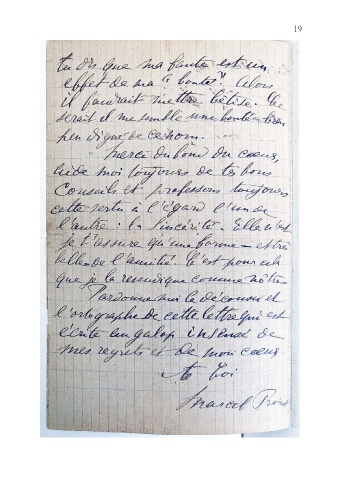 19
tu dis que ma faute est un
effet de ma "bonté". Alors
il faudrait mettre bêtise. Ce
serait il me semble une bonté bien
peu digne de ce nom.
Merci du fond du cœur,
aide moi toujours de tes bons
conseils et professons toujours
cette vertu à l'égard l'un de
l'autre : la sincérité. Elle n'est
je t'assure qu'une forme – et très
belle – de l'amitié. C'est pour cela
que je la revendique comme nôtre –
Pardonne moi le décousu et
l'ortographe de cette lettre qui est
écrite au galop insensé de
mes regrets et de mon cœur
à toi
Marcel Proust